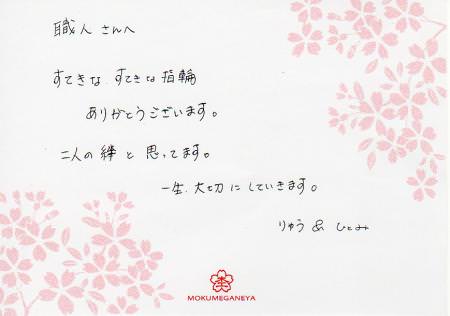 職人さんへ
すてきな、すてきな指輪
ありがとうございます。
二人の絆と思ってます。
一生、大切にしていきます。
りゅう & ひとみ
MOKUMEGANEYA